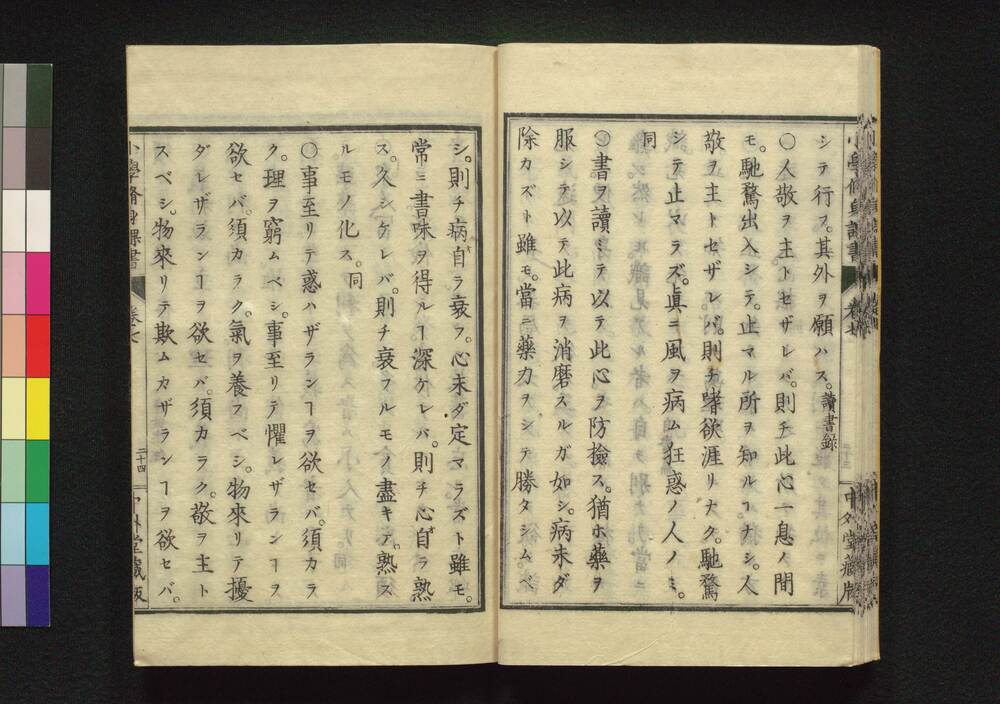 シテ行フ。其外ヲ願ハス。讀書録
〇人敬ヲ主トセザレバ。則チ此心一息ノ間
モ。馳騖出入シテ。止マル所ヲ知ルヿナシ。人
敬ヲ主トセザレバ。則チ嗜欲涯リナク。馳騖
シテ止マラズ。眞ニ風ヲ病ム狂惑ノ人ノミ。
同
〇書ヲ讀ミテ以テ此心ヲ防撿ス。猶ホ藥ヲ
服シテ以テ此病ヲ消磨スルガ如シ。病未ダ
除カズト雖モ。當ニ藥力ヲシテ勝タシムベ
シ。則チ病自ラ衰フ。心未ダ定マラズト雖モ。
常ニ書味ヲ得ルヿ深ケレバ。則チ心自ラ熟
ス。久シケレバ。則チ衰フルモノ盡キテ。熟ス
ルモノ化ス。同
〇事至リテ惑ハザランヿヲ欲セバ。須カラ
ク。理ヲ窮ムベシ。事至リテ懼レザランヿヲ
欲セバ。須カラク。氣ヲ養フベシ。物來リテ擾
ダレザランヿヲ欲セバ。須カラク。敬ヲ主ト
スベシ。物來リテ欺ムカザランヿヲ欲セバ。
小學脩身課書
卷七
二十四
中外堂藏版